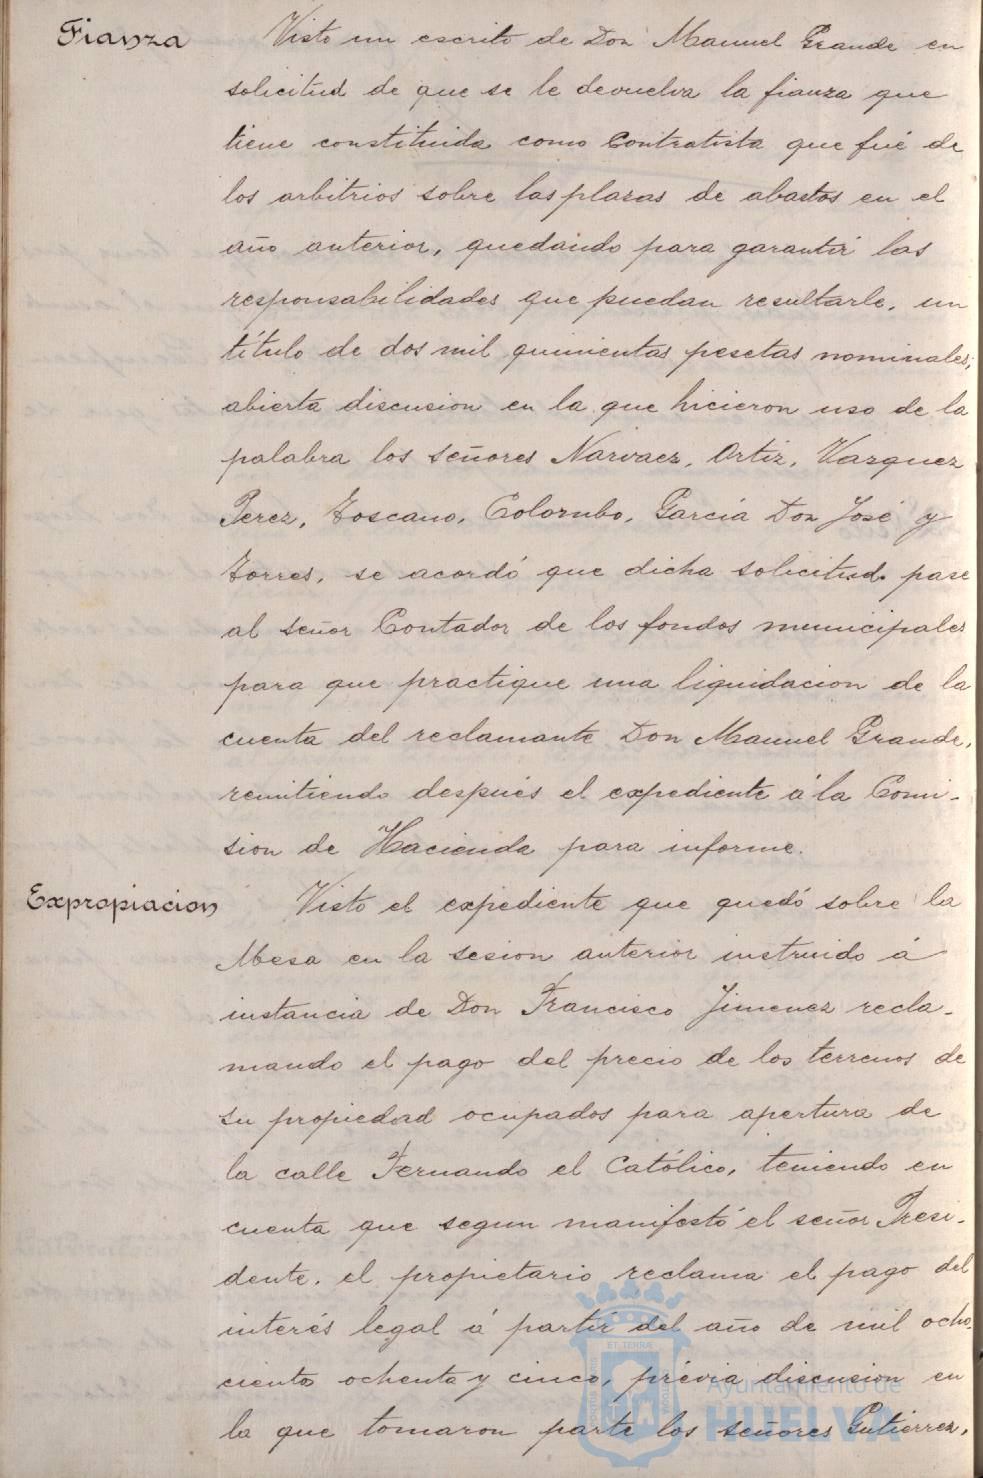 Fianza
Visto un escrito de Don Manuel Grande en
solicitud de que se le devuelva la fianza que
tiene constituida como Contratista que fué de
los arbitrios sobre las plazas de abastos en el
año anterior, quedando para garantir las
responsabilidades que puedan resultarle, un
título de dos mil quinientas pesetas nominales;
abierta discusion en la que hicieron uso de la
palabra los señores Narvaez, Ortiz, Vazquez
Perez, Toscano, Colombo, García Don José y
Torres, se acordó que dicha solicitud pase
al señor Contador de los fondos municipales
para que practique una liquidacion de la
cuenta del reclamante Don Manuel Grande,
remitiendo después el expediente á la Comi-
sion de Hacienda para informe.
Expropiacion
Visto el expediente que quedó sobre la
Mesa en la sesion anterior instruido á
instancia de Don Francisco Jimenez recla-
mando el pago del precio de los terrenos de
su propiedad ocupados para apertura de
la calle Fernando el Católico, teniendo en
cuenta que segun manifestó el señor Presi-
dente, el propietario reclama el pago del
interés legal á partir del año de mil ocho-
cientos ochenta y cinco, prévia discusion en
la que tomaron parte los señores Gutierrez,
ET TERRA
Ayuntamiento de
HUELVA